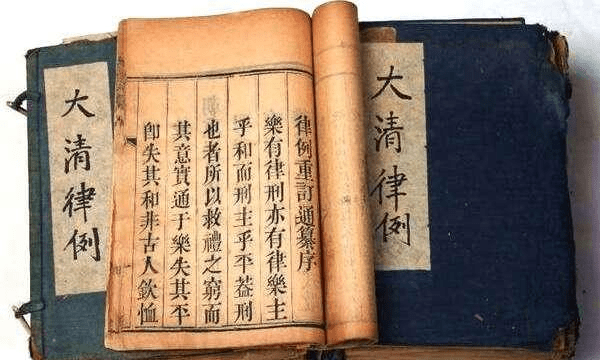 大清律例
律例重訂通纂序
樂有律刑亦有律樂主
乎和而刑主乎平葢刑
也者所以救禮之窮而
其意實通于樂失其平
卽失其和非古人欽恤
大清律例